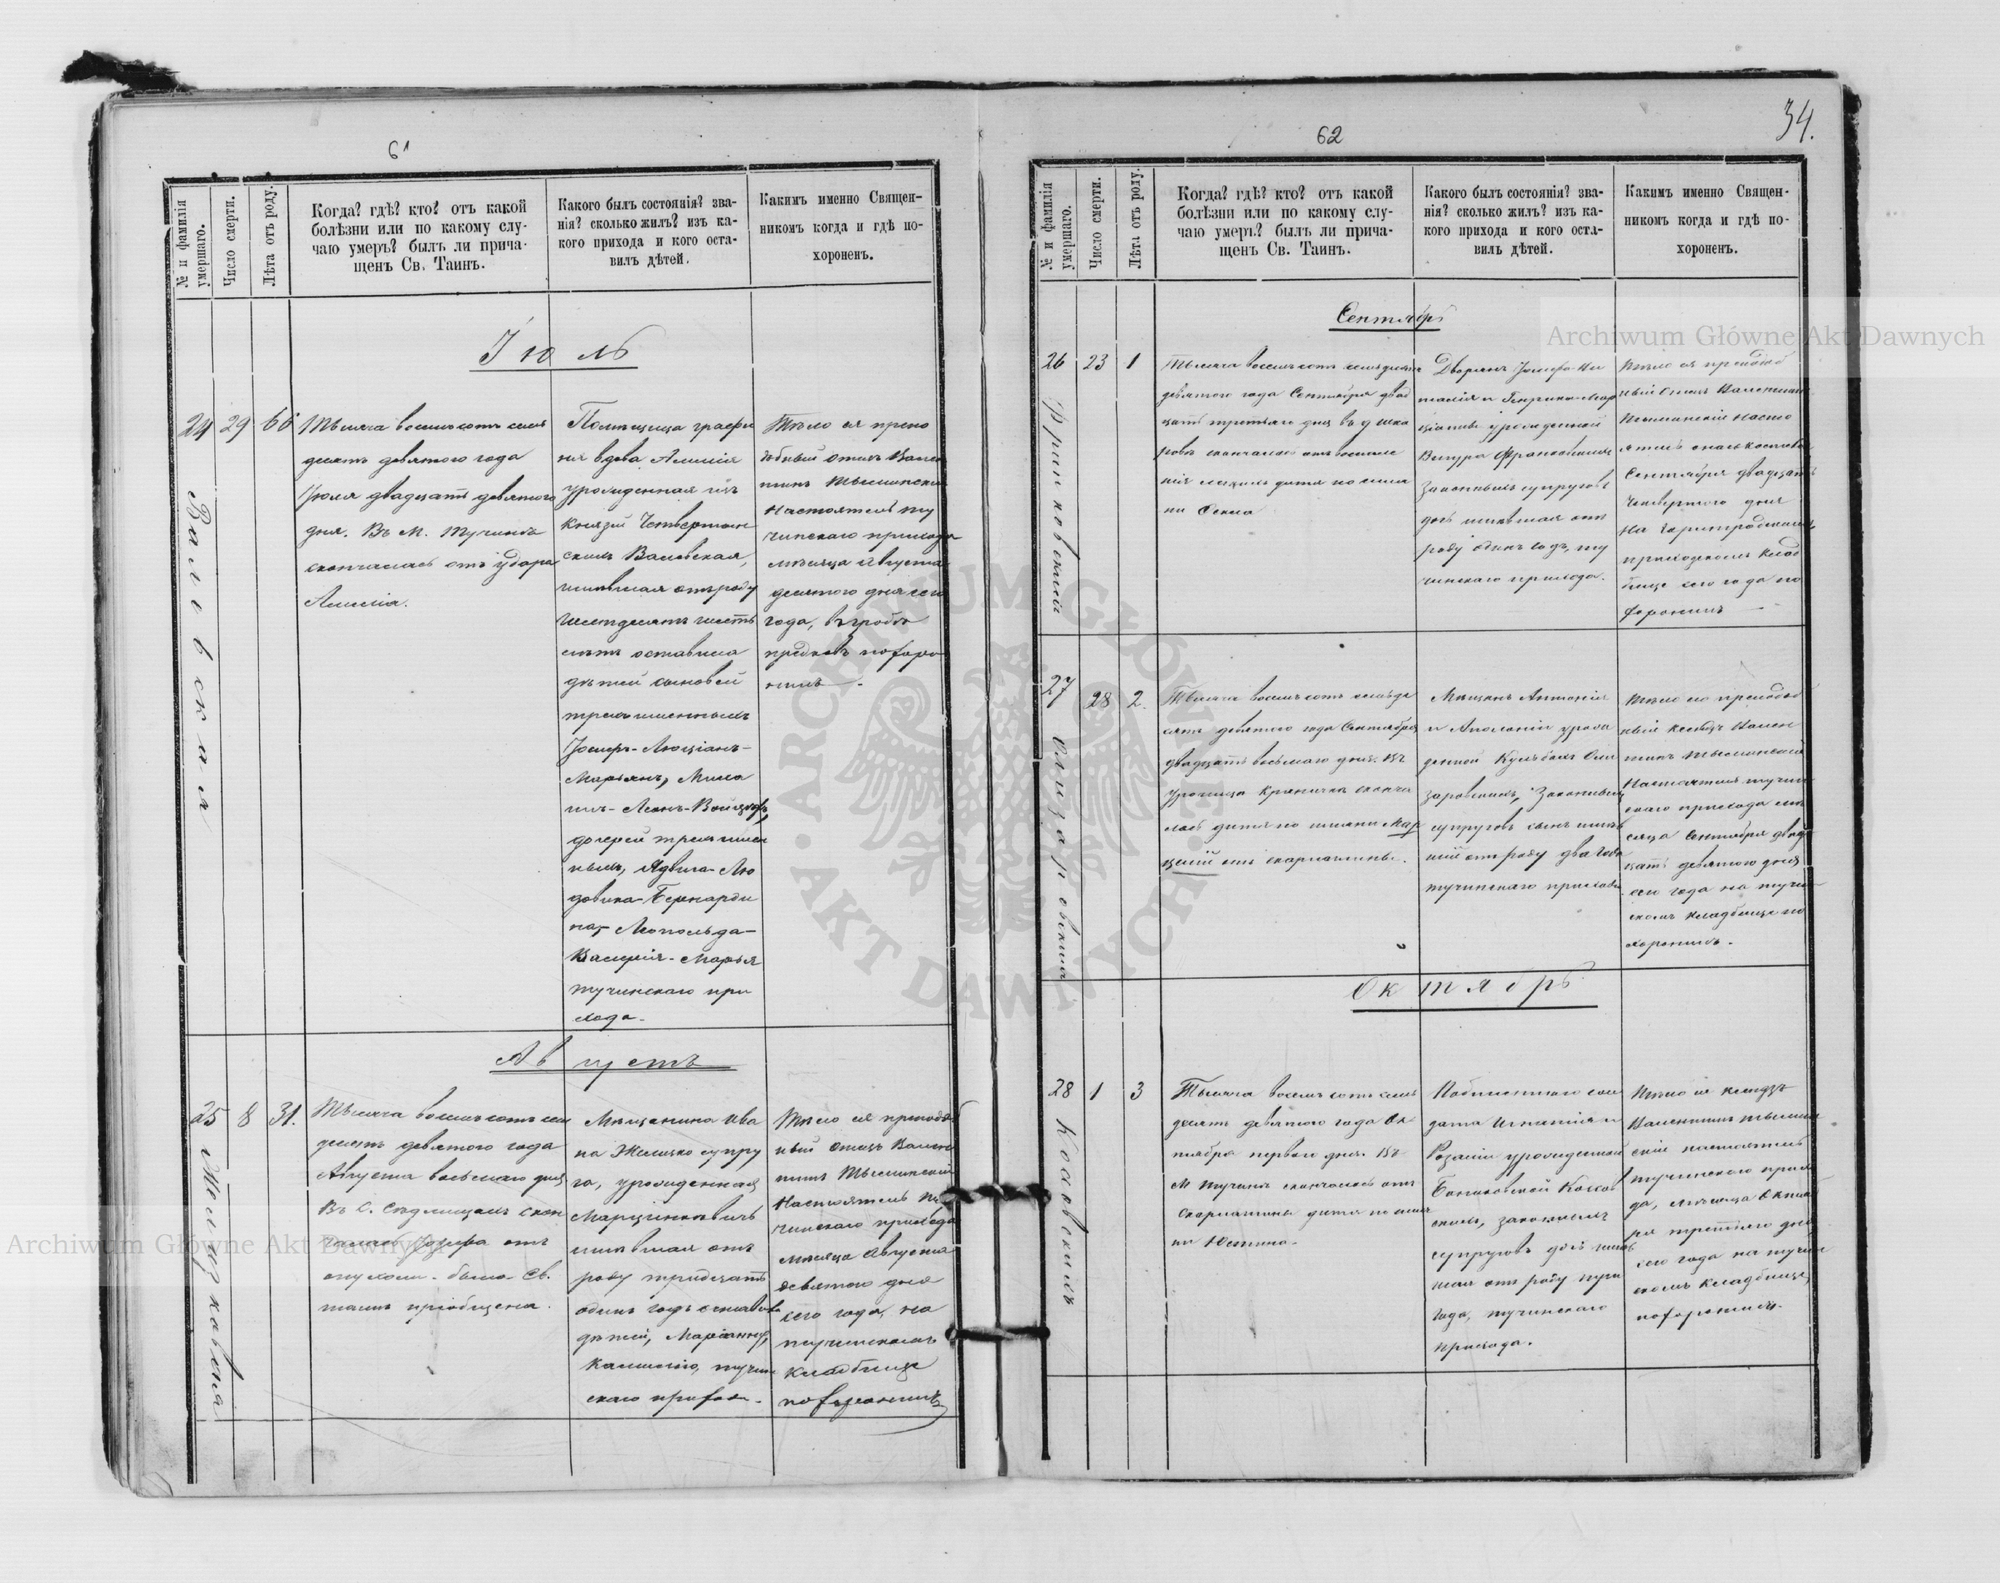 61
№ и фамилія умершаго.
Число смерти.
Лѣта отъ роду.
Когда? гдѣ? кто? отъ какой
болѣзни или по какому слу-
чаю умеръ? былъ ли прича-
щенъ Св. Таинъ.
Какого былъ состоянія? зва-
нія? сколько жилъ? изъ ка-
кого прихода и кого оста-
вилъ дѣтей.
Какимъ именно Священ-
никомъ когда и гдѣ по-
хороненъ.
Іюль
24
29
66
Валевская
Тысяча восемьсотъ семь
десятъ девятого года
Іюля двадцать девятого
дня. Въ М. Тучинѣ
скончалась отъ удара
Помѣщица графи
ня вдова
урожденная изъ
Князей Четвертин
скихъ Валевская,
жившая отъ роду
шестьдесятъ шесть
лѣтъ оставила
дѣтей сыновей
трехъ именныхъ
Іосифъ-Люціанъ-
Марьянъ, Миха
илъ-Леонъ-Войцехъ,
дочерей трехъ имен
ныхъ, Ядвига-Лю
довика-Бернарди
на, Леопольда-
Валерія-Марья
тучинскаго при
хода.
Тѣло ея препо
добный отецъ Вален
тинъ Тысминскій
Настоятель ту
чинскаго прихода
мѣсяца Августа
десятого дня сего
года, въ гробѣ
предковъ похоро
нилъ.
Августъ
25
8
31.
Желизковна
Тысяча восемьсотъ сем
десятъ девятого года
Августа восьмаго дня
Въ С.
чалась Іозефа отъ
опухоли. была Св.
таинъ пріобщена.
Мѣщанина Ива
на Желизко супру
га, урожденная
Марцинкевичъ
жившая отъ
роду тридцать
одинъ годъ оставивъ
дѣтей, Маріанну,
тучин
скаго прихода.
Тѣло ея преподоб
ный отецъ Вален
тинъ Тысминскій
Настоятель ту
чинскаго прихода
мѣсяца Августа
девятого дня
сего года, на
тучинскомъ
кладбище
похоронилъ
62
34.
№ и фамилія умершаго.
Число смерти.
Лѣта отъ роду.
Когда? гдѣ? кто? отъ какой
болѣзни или по какому слу-
чаю умеръ? былъ ли прича-
щенъ Св. Таинъ.
Какого былъ состоянія? зва-
нія? сколько жилъ? изъ ка-
кого прихода и кого оста-
вилъ дѣтей.
Какимъ именно Священ-
никомъ когда и гдѣ по-
хороненъ.
Сентябрь
26
23
1
Франковскій
Тысяча восемьсотъ семьдесятъ
девятого года Сентября двад
цать третьяго дня въ
скончалась отъ
дитя по име
ни
Дворянъ Іосифа
урожденной
Франковскихъ
Законныхъ супруговъ
дочь жившая отъ
роду одинъ годъ, ту
чинскаго прихода.
Тѣло ея преподоб
ный отецъ Валентинъ
Тысминскій Насто
ятель
Сентября двадцать
четвертого дня
на
приходскомъ клад
бище сего года по
хоронилъ
27
28
2.
Тысяча восемьсотъ семьде
сятъ девятого года Сентября
двадцать восьмаго дня. Въ
скончи
лось дитя по имени Мар
целій отъ скарлатины.
Мѣщанъ Антонія
и Аполоніи урож
денной
Законныхъ
супруговъ сынъ жив
шій отъ роду два года
тучинскаго прихода.
Тѣло его преподоб
ный ксендзъ Вален
тинъ Тысминскій
Настоятель тучин
скаго прихода мѣ
сяца Сентября двад
цать девятого дня
сего года на тучин
скомъ кладбище по
хоронилъ.
Октябрь
28
1
3
Тысяча восемьсотъ семь
десятъ девятого года Ок
тября перваго дня. Въ
М Тучинѣ скончалось отъ
скарлатины дитя по име
ни Юстина.
сол
дата Игнатія и
Розаліи урожденной
законныхъ
супруговъ дочь жив
шая отъ роду три
года, тучинскаго
прихода.
Тѣло ея ксендзъ
Валентинъ Тысмин
скій настоятель
тучинскаго прихо
да, мѣсяца Октяб
ря третьяго дня
сего года на тучин
скомъ кладбище,
похоронилъ.
Archiwum Główne Akt Dawnych
Archiwum Główne Akt Dawnych
ARCHIWUM GŁÓWNE
AKT DAWNYCH